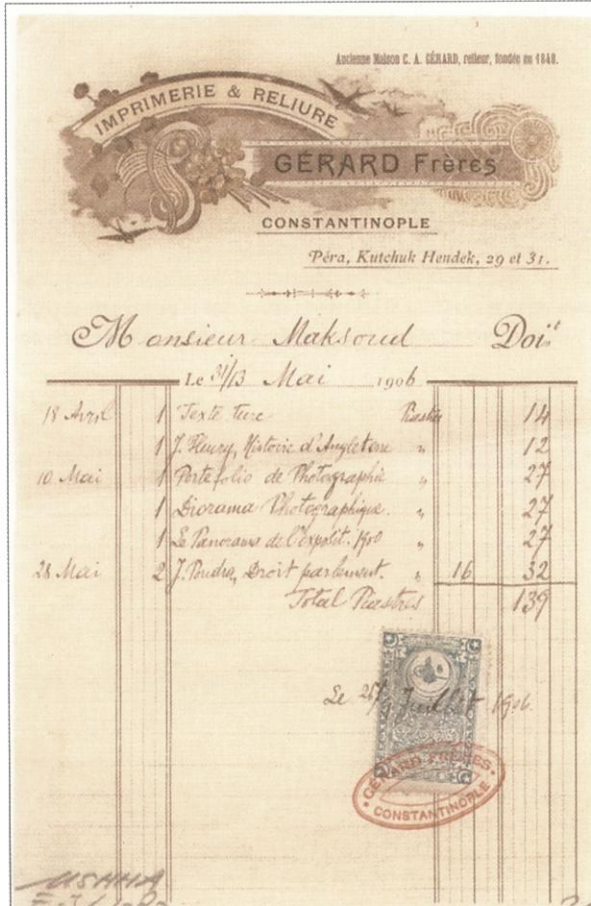 Ancienne Maison C. A. GÉRARD, relieur, fondée en 1848.
IMPRIMERIE & RELIURE
GÉRARD Frères
CONSTANTINOPLE
Péra, Kutchuk Hendek, 29 et 31.
Monsieur Maksoud Doit
Le 31/13 Mai 1906
18 Avril 1 Texte turc Piastres 14
1 J. Fleury, Histoire d'Angleterre " 12
10 Mai 1 Portefolio de Photographie " 27
1 Diorama Photographique. " 27
1 Le Panorama de l'exposit. 1900 " 27
28 Mai 2 J. Poudra, Droit parlement. " 16 32
Total Piastres 139
Le Juillet 1906
GÉRARD FRÈRES
CONSTANTINOPLE